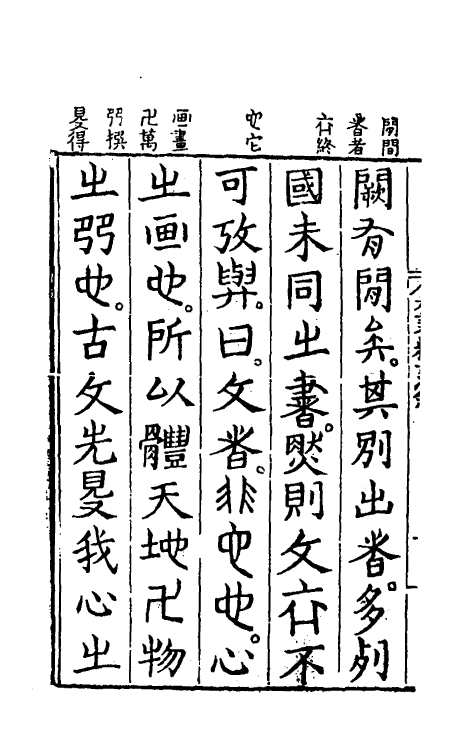 閒間
者者
終
它
画畫
卍萬
弜撰
㝵得
闕有閒矣。其別出者。多列
國未同㞢書。然則文不
可攷與。曰。文者。非它也。心
㞢画也。所以體天地卍物
㞢弜也。古文先㝵我心㞢